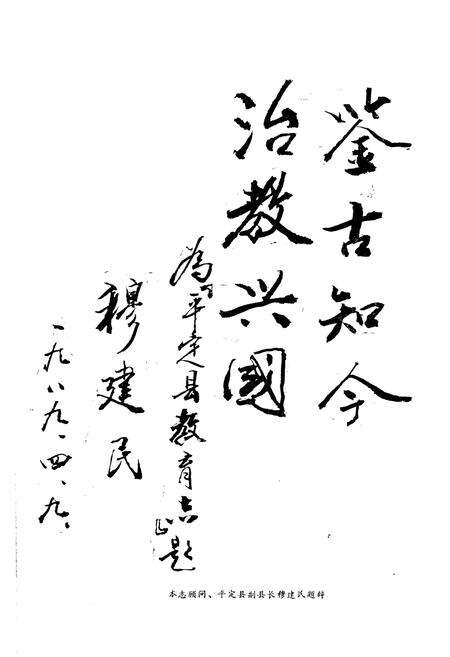 鉴古知今
治教兴國
为平定县教育志题
穆建民
一九八九.四.九.
本志顾问、平定县副县长穆建民题辞